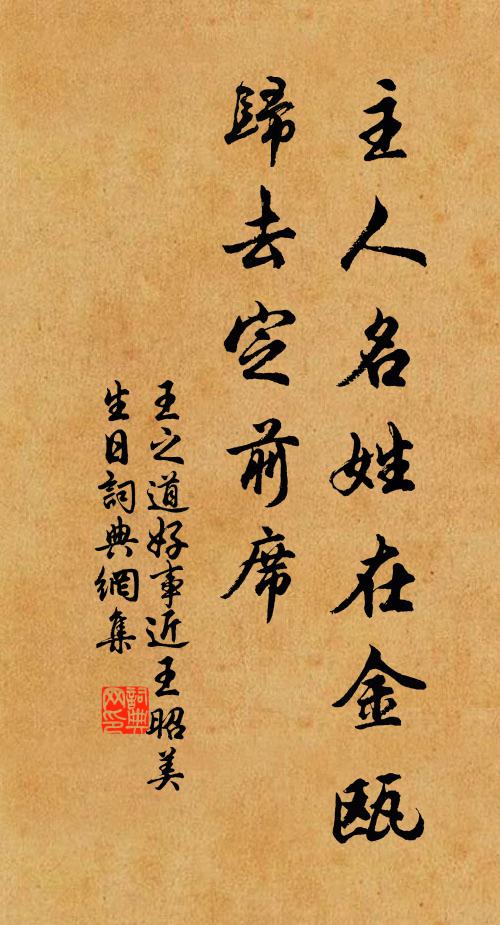 主人名姓在金甌
歸去定前席
王之道好事近王昭美
生日詞典網集
詞典
网印